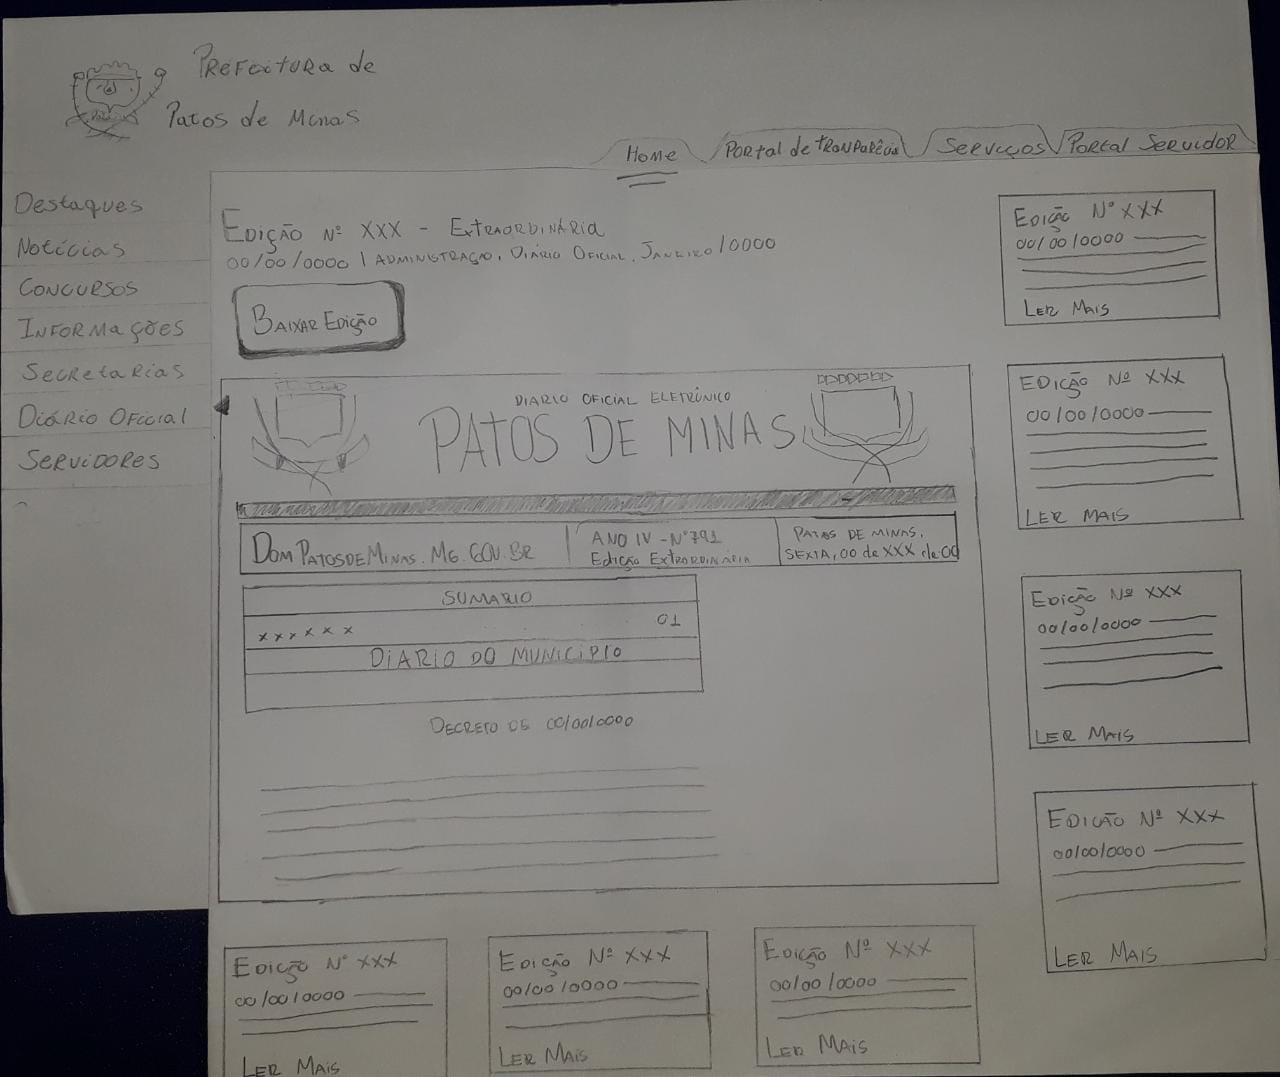 Prefeitura de
Patos de Minas
Home
Portal de tranparência
Serviços
Portal Servidor
Destaques
Notícias
Concursos
Informações
Secretarias
Diário Oficial
Servidores
Edição Nº XXX - Extraordinária
00/00/0000 | Administração, Diário Oficial, Janeiro/0000
Baixar Edição
Diario Oficial Eletrônico
PATOS DE MINAS
DomPatosdeMinas.MG.GOV.BR
ANO IV - Nº791
Edição Extraordinária
Patos de Minas,
SEXTA, 00 de XXX de 00
SUMARIO
xxxxxx 01
DIARIO DO MUNICIPIO
Decreto de 00/00/0000
Edição Nº XXX
00/00/0000
Ler Mais
Edição Nº XXX
00/00/0000
Ler Mais
Edição Nº XXX
00/00/0000
Ler Mais
Edição Nº XXX
00/00/0000
Ler Mais
Edição Nº XXX
00/00/0000
Ler Mais
Edição Nº XXX
00/00/0000
Ler Mais
Edição Nº XXX
00/00/0000
Ler Mais